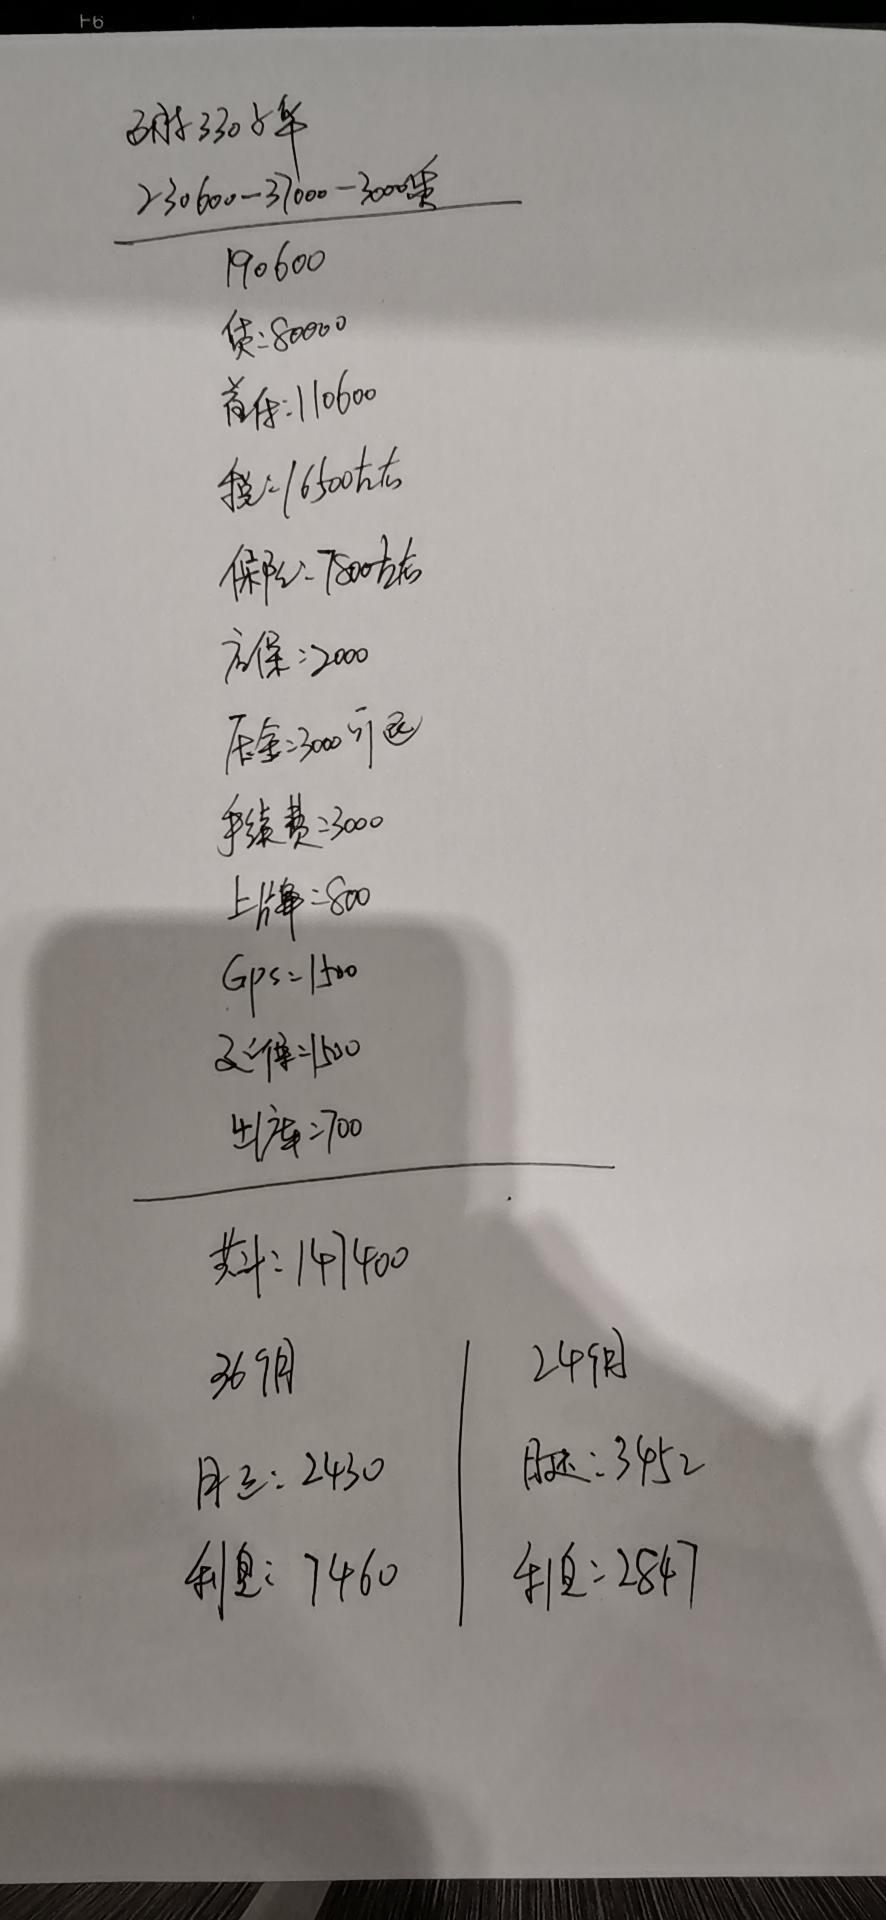 F6
330
230600-37000-3000贷
190600
贷:80000
首付:110600
税:16500左右
保险:7800左右
店保:2000
押金:3000可退
手续费:3000
上牌:800
Gps:1500
延保:1500
出库:700
共计:147400
36个月
24个月
月还:2430
月还:3452
利息:7460
利息:2847